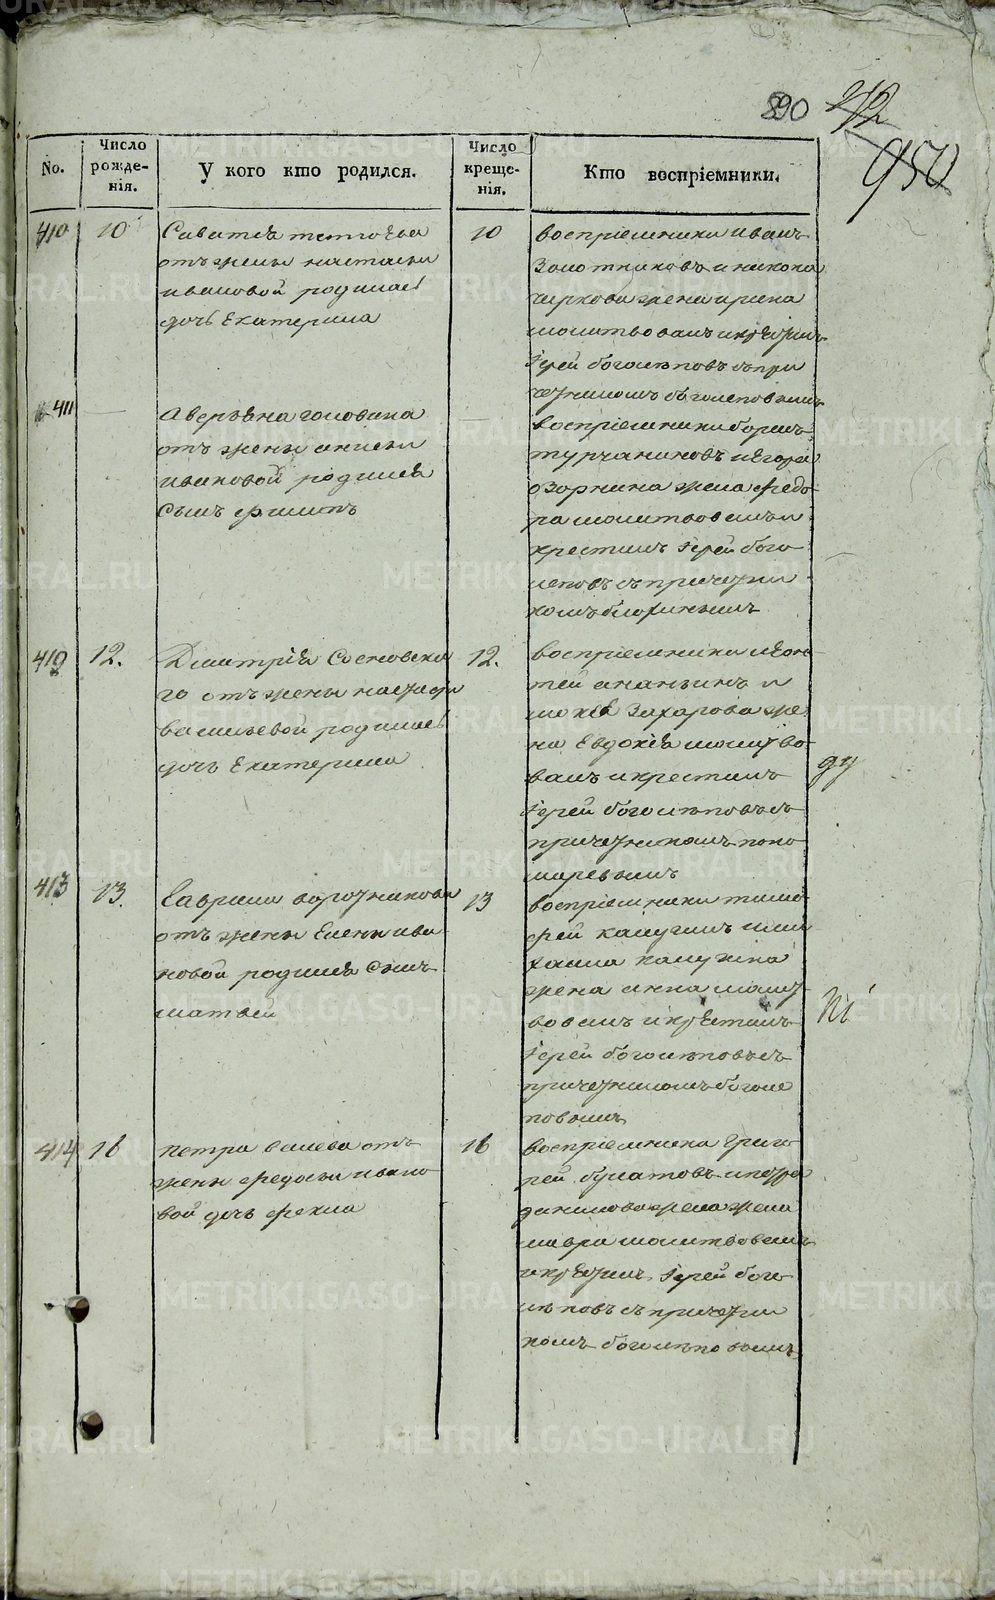 890 272
950
No. Число рожденія. У кого кто родился. Число крещенія. Кто воспріемники.
410 10 Саватѣа
отъ жены настасьи
ивановой родилась
дочь Екатерина
10 воспріемники иванъ
Золотниковъ и никона
чиркова жена ирина
молитвовалъ и крестилъ
Іерей боголѣповъ съ при
четникомъ боголеповымъ
411 — Аверьяна головина
отъ жены анисьи
ивановой родился
сынъ филипъ
— воспріемники борисъ
турчаниковъ и Егора
озорнина жена федо
ра молитвовалъ и
крестилъ Іерей бого
леповъ съ причетни
комъ
412 12. Дмитрія Сосновска
го отъ жены настасьи
васильевой родилась
дочь Екатерина
12. воспріемники
тей ананьинъ и
Захарова же
на Евдокѣя молитво
валъ и крестилъ
Іерей боголѣповъ съ
причетникомъ поно
маревымъ
ду
413 13. Гаврила воротникова
отъ жены Елены ива
новой родился сынъ
матвей
13 воспріемники тимо
фей калугинъ и ми
хаила калугина
жена анна молит
вовалъ и крестилъ
Іерей боголѣповъ съ
причетникомъ боголе
повымъ
414 16 петра валева отъ
жены федосьи ивано
вой дочь фекла
16 воспріемники григо
рей булатовъ и петра
данилова жена жена
мавра молитвовалъ
и крестилъ Іерей бого
лѣповъ съ причетни
комъ боголѣповымъ
METRIKI.GASO-URAL.RU